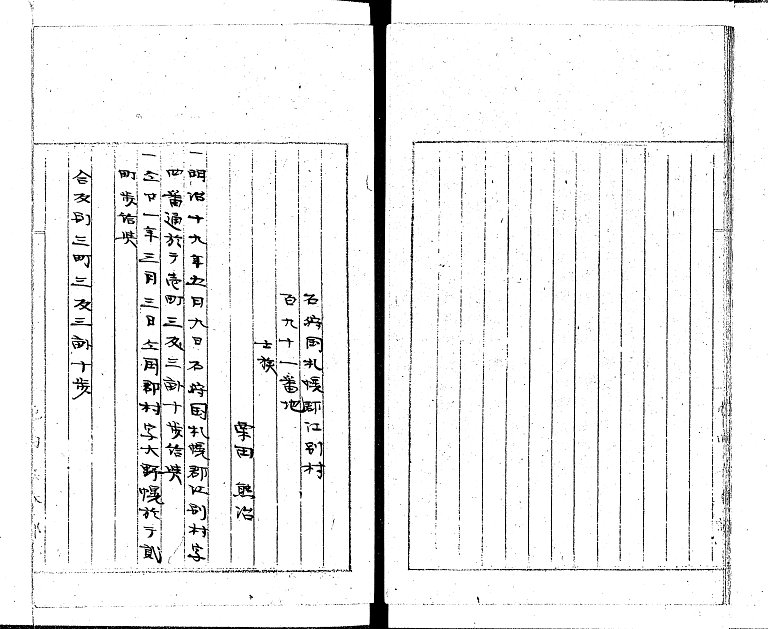 石狩国札幌郡江別村
百九十一番地
士族
栗田 熊治
一明治十九年五月九日石狩国札幌郡江別村字
四番通於テ壱町三反三畝十歩給与
一仝廿一年三月三日仝国郡村字大野幌於テ貳
町歩給与
合反別三町三反三畝十歩